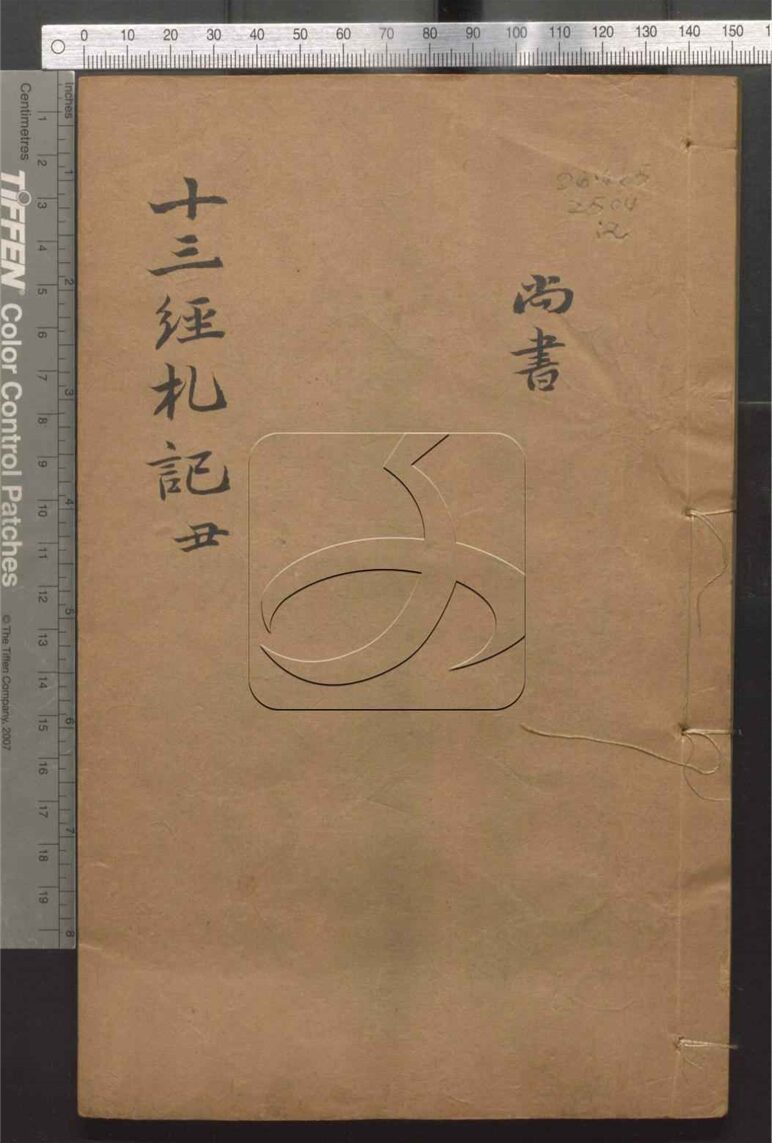 0 10 20 30 40 50 60 70 80 90 100 110 120 130 140 150
尚書
十三經札記 丑
Centimetres
Inches
1 2 3 4 5 6 7 8 9 10 11 12 13 14 15 16 17 18 19
1 2 3 4 5 6 7 8
TIFFEN Color Control Patches © The Tiffen Company, 2007